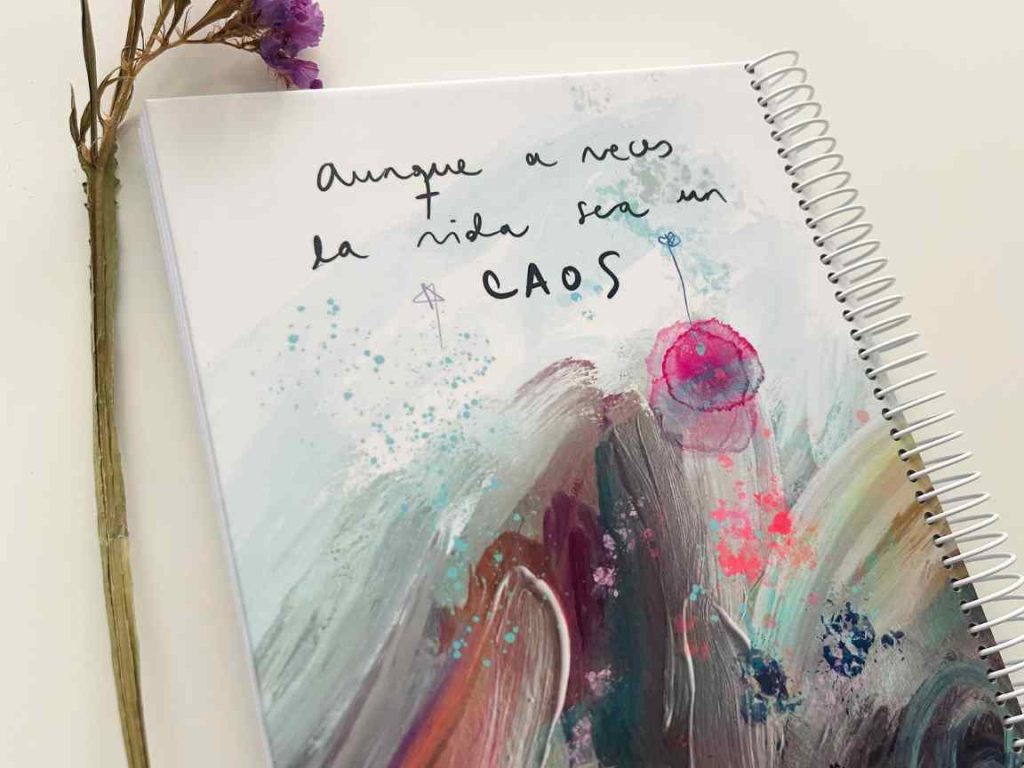 aunque a veces
la vida sea un
CAOS